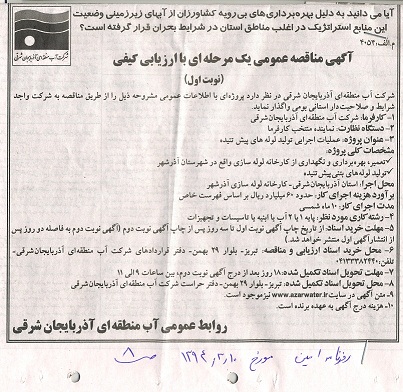 آیا می دانید به دلیل بهره‌برداری‌های بی‌رویه کشاورزان از آبهای زیرزمینی وضعیت
این منابع استراتژیک در اغلب مناطق استان در شرایط بحران قرار گرفته است؟
م.الف:۴۰۵۳
شرکت آب منطقه‌ای آذربایجان شرقی
آگهی مناقصه عمومی یک مرحله ای با ارزیابی کیفی
(نوبت اول)
شرکت آب منطقه‌ای آذربایجان شرقی در نظر دارد پروژه‌ای با اطلاعات عمومی مشروحه ذیل را از طریق مناقصه به شرکت واجد
شرایط و صلاحیت‌دار استانی بومی واگذار نماید.
۱- کارفرما: شرکت آب منطقه‌ای آذربایجان‌شرقی
۲- دستگاه نظارت: نماینده منتخب کارفرما
۳- عنوان پروژه: عملیات اجرایی تولید لوله های پیش تنیده
مشخصات کلی پروژه:
✓تعمیر، بهره‌برداری و نگهداری از کارخانه لوله سازی واقع در شهرستان آذرشهر
✓تولید لوله های بتنی پیش‌تنیده
محل اجرا: استان آذربایجان‌شرقی- کارخانه لوله سازی آذرشهر
برآورد هزینه اجرای کار: حدود ۶۰ میلیارد ریال بر اساس فهرست خاص
مدت اجرای کار: ۱۰ ماه شمسی
۴- رشته کاری مورد نظر: پایه ۱ یا ۲ آب یا ابنیه یا تاسیسات و تجهیزات
۵- مهلت خرید اسناد: از تاریخ چاپ آگهی نوبت اول تا سه روز پس از چاپ آگهی نوبت دوم (آگهی نوبت دوم به فاصله دو روز پس
از انتشار آگهی اول منتشر خواهد شد.)
۶- محل خرید اسناد ارزیابی و مناقصه: تبریز- بلوار ۲۹ بهمن- دفتر قراردادهای شرکت آب منطقه‌ای آذربایجان‌شرقی-
تلفن:۰۴۱۳۳۳۸۲۴۴۰
۷- مهلت تحویل اسناد تکمیل شده: ۱۸ روز بعد از درج آگهی نوبت دوم، بین ساعات ۹ الی ۱۱
۸- محل تحویل اسناد تکمیل شده: تبریز- بلوار ۲۹ بهمن- دفتر حراست شرکت آب منطقه‌ای آذربایجان شرقی
۹- متن آگهی در سایت www.azarwater.ir نیز موجود است.
۱۰- هزینه درج آگهی به عهده برنده است.
روابط عمومی آب منطقه‌ای آذربایجان شرقی
روزنامه امین مورخ ۱۳۹۴/۲/۱۰ ص ۸